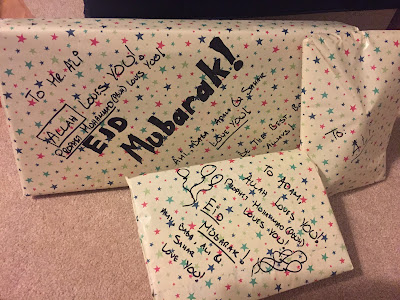 To Me Ali
ALLAH Loves YOU!
Prophet Muhammad (PBUH) Loves You!
EID
Mubarak!
Ami, Baba, Adam & Sahar
Love You!
Be Their Best
Always!
To
To Adam,
ALLAH Loves YOU!
Prophet Muhammad (PBUH)
Loves You!
Eid
Mubarak!
Ami, Baba, Ali &
Sahar
Love You!